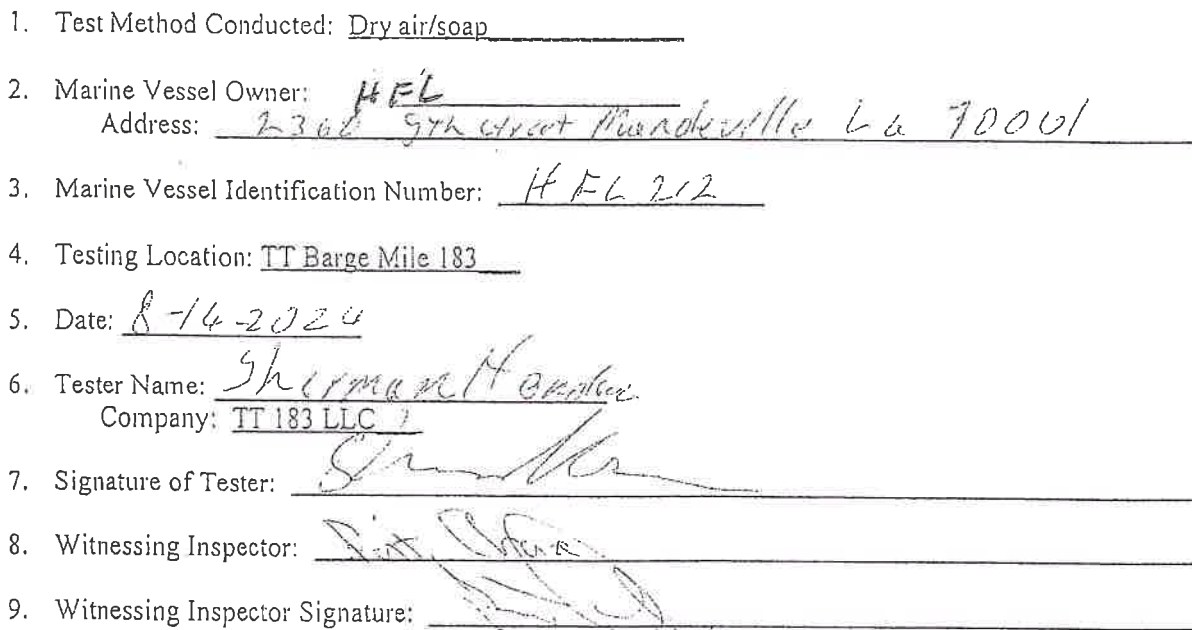 1. Test Method Conducted: Dry air/soap
2. Marine Vessel Owner: HFL
Address: 9th street Mandeville La
3. Marine Vessel Identification Number: HFL 212
4. Testing Location: TT Barge Mile 183
5. Date: 8-14-2024
6. Tester Name: Sherman
Company: TT 183 LLC
7. Signature of Tester:
8. Witnessing Inspector:
9. Witnessing Inspector Signature: